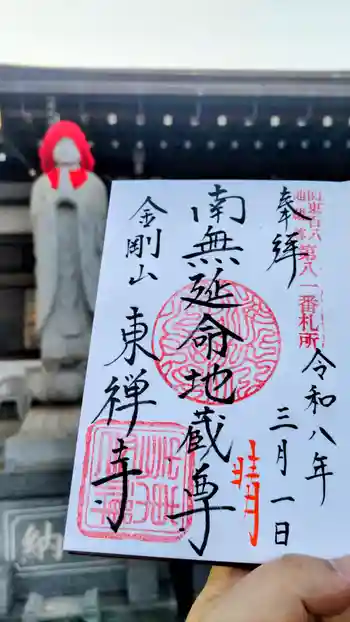 奉拝
関東百八
地蔵尊
第八一番札所
令和八年
三月一日
南無延命地蔵尊
晴
金剛山
東禅寺
納